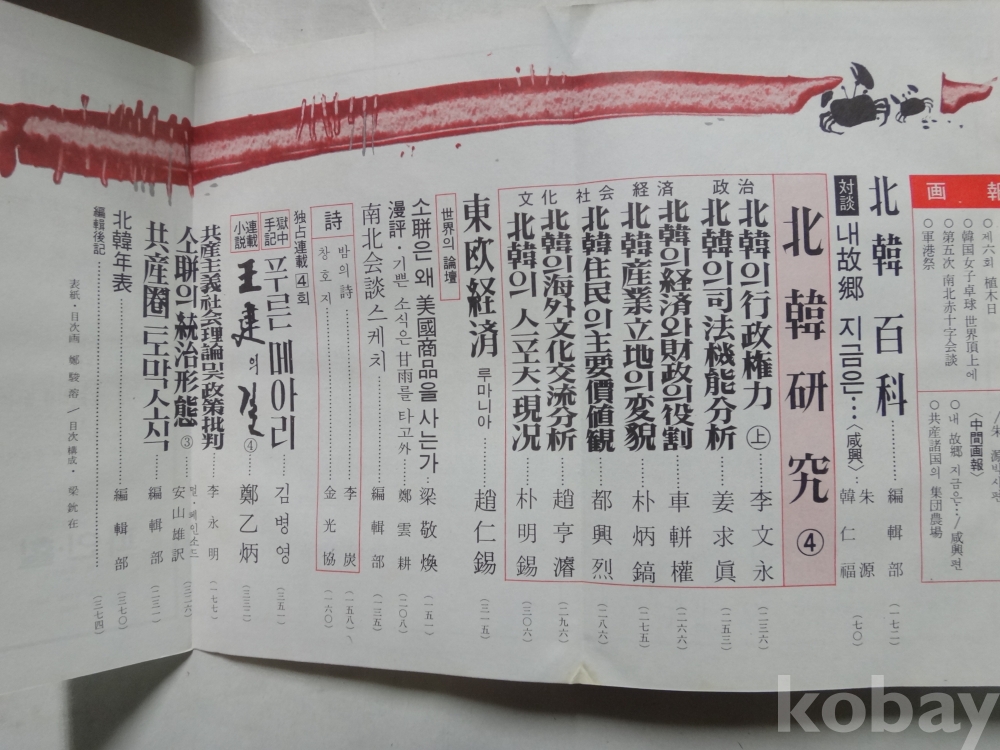 画 報
○ 제六회 植木日
○ 韓国女子卓球 世界頂上에
○ 第五次 南北赤十字会談
○ 軍港祭
〈中間画報〉
○ 내 故郷 지금은…/咸興편
○ 共産諸国의 集団農場
北韓百科 編輯部 (一七二)
対談 내故郷 지금은…〈咸興〉 朱源 韓仁福 (七〇)
北韓研究 ④
政治 北韓의 行政権力 ㊤ 李文永 (二三六)
北韓의 司法機能分析 姜求眞 (二五三)
経済 北韓의 経済와 財政의 役割 車軿權 (二六六)
北韓産業立地의 変貌 朴炳鎬 (二七五)
社会 北韓住民의 主要價値観 都興烈 (二八六)
文化 北韓의 海外文化交流分析 趙亨濬 (二九六)
北韓의 人口大現况 朴明錫 (三〇六)
世界의 論壇
東欧経済 루마니아 趙仁錫 (三一五)
소聨은 왜 美國商品을 사는가 梁敬煥 (一五一)
漫評·기쁜 소식은 甘雨를 타고外 鄭雲耕 (二〇八)
南北会談스케치 編輯部 (一三五)
詩
밤의 詩 李炭 (一五八)
창호지 金光協 (一六〇)
独占連載 ④회
獄中手記 푸르른 메아리 김병영 (三五一)
連載小説 王建의 길 ④ 鄭乙炳 (三三二)
共産主義社会理論및政策批判 李永明 (一七七)
소聨의 統治形態 ③ 安山雄訳 (三二六)
共産圈 토막소식 編輯部 (二三一)
北韓年表 編輯部 (三七〇)
編輯後記 (三七四)
表紙·目次画 鄭駿溶/目次構成·梁銃在
kobay